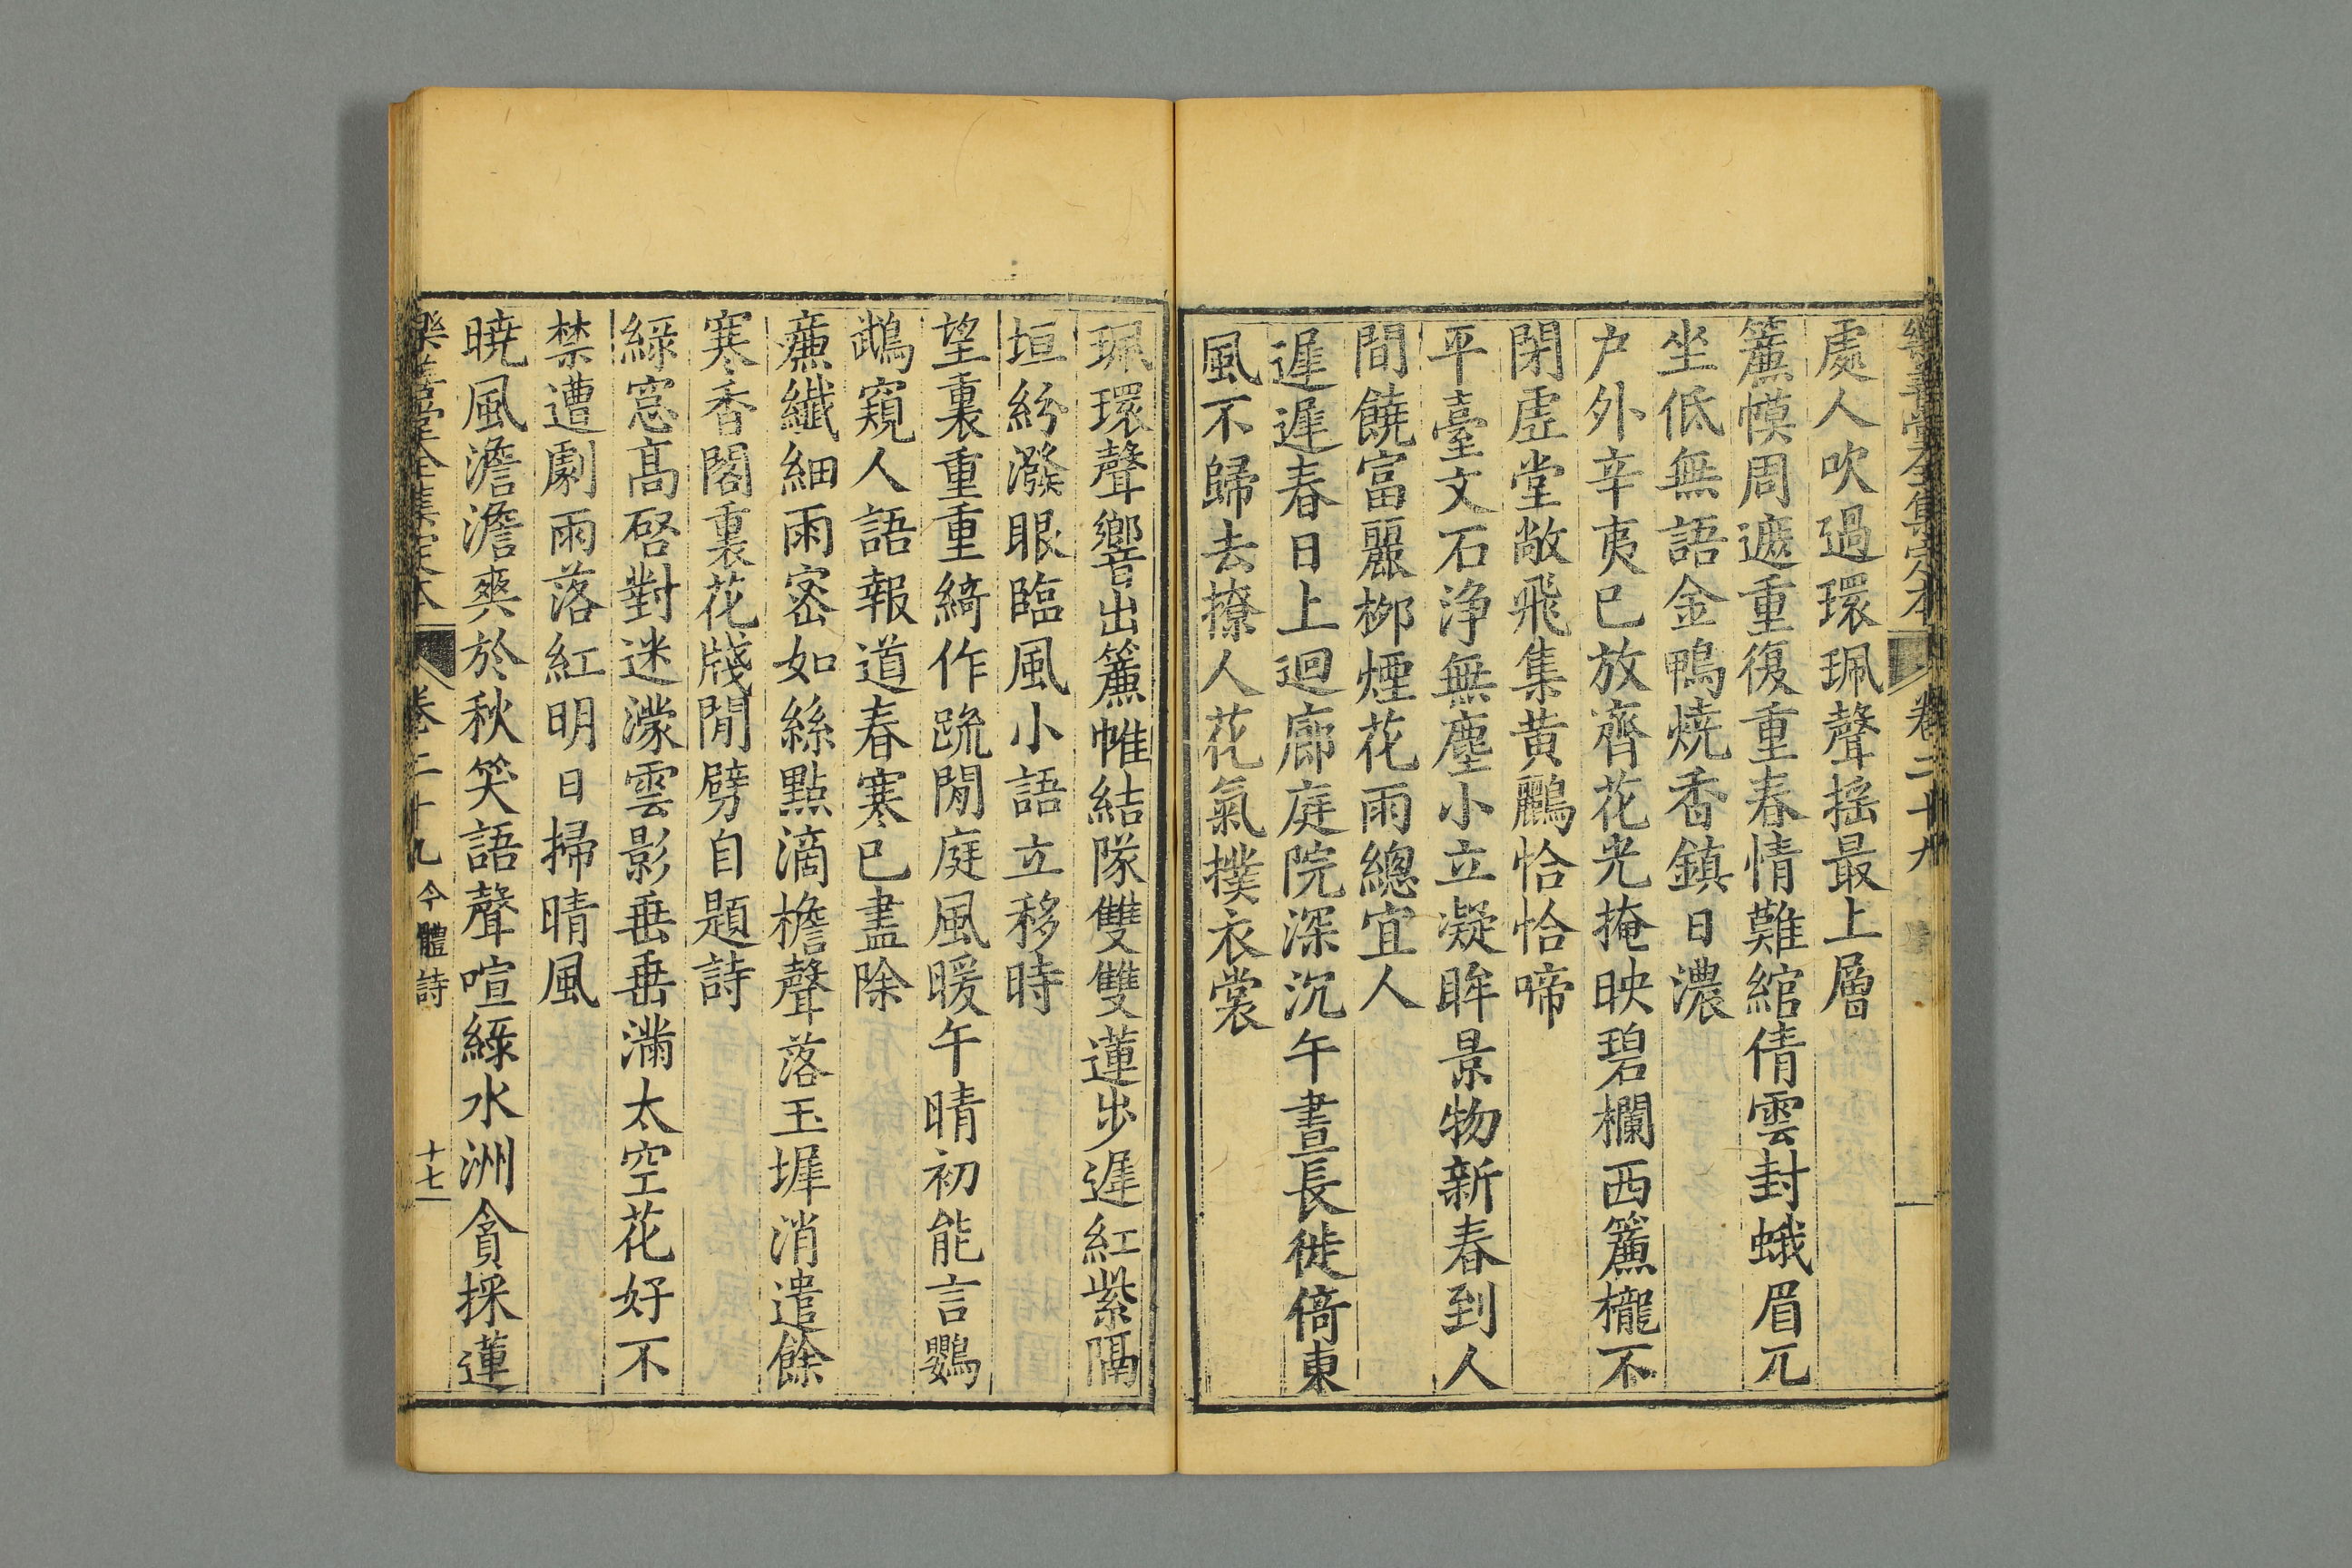 樂善堂全集定本 卷二十九
處人吹過環珮聲搖最上層
簾幙周遮重復重春情難綰倩雲封蛾眉兀
坐低無語金鴨燒香鎮日濃
户外辛夷已放齊花光掩映碧欄西簾櫳不
閉虚堂敞飛集黄鸝恰恰啼
平臺文石浄無塵小立凝眸景物新春到人
間饒富麗栁煙花雨總宜人
遲遲春日上迴廊庭院深沉午晝長徙倚東
風不歸去撩人花氣撲衣裳
珮環聲響出簾帷結隊雙雙蓮步遲紅紫隔
垣紛潑眼臨風小語立移時
望裏重重綺作疏閒庭風暖午晴初能言鸚
鵡窺人語報道春寒已盡除
薕纖細雨宻如絲點滴檐聲落玉墀消遣餘
寒香閣裏花牋閒劈自題詩
綠窓高啓對迷濛雲影垂垂滿太空花好不
禁遭劇雨落紅明日掃晴風
曉風澹澹爽於秋笑語聲喧綠水洲貪採蓮
樂善堂全集定本 卷二十九 今體詩 十七